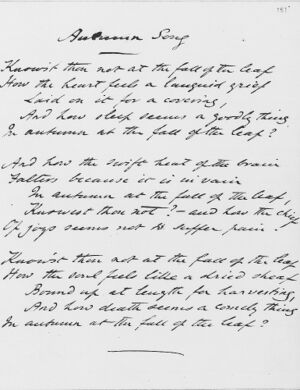 Autumn Song
Know'st thou not at the fall of the leaf
How the heart feels a languid grief
Laid on it for a covering,
And how sleep seems a goodly thing
In autumn at the fall of the leaf?
And how the swift beat of the brain
Falters because it is in vain
In autumn at the fall of the leaf,
Knowest thou not? — and how the chief
Of joys seems not to suffer pain?
Know'st thou not at the fall of the leaf
How the soul feels like a dried sheaf
Bound up at length for harvesting,
And how death seems a comely thing
In autumn at the fall of the leaf?